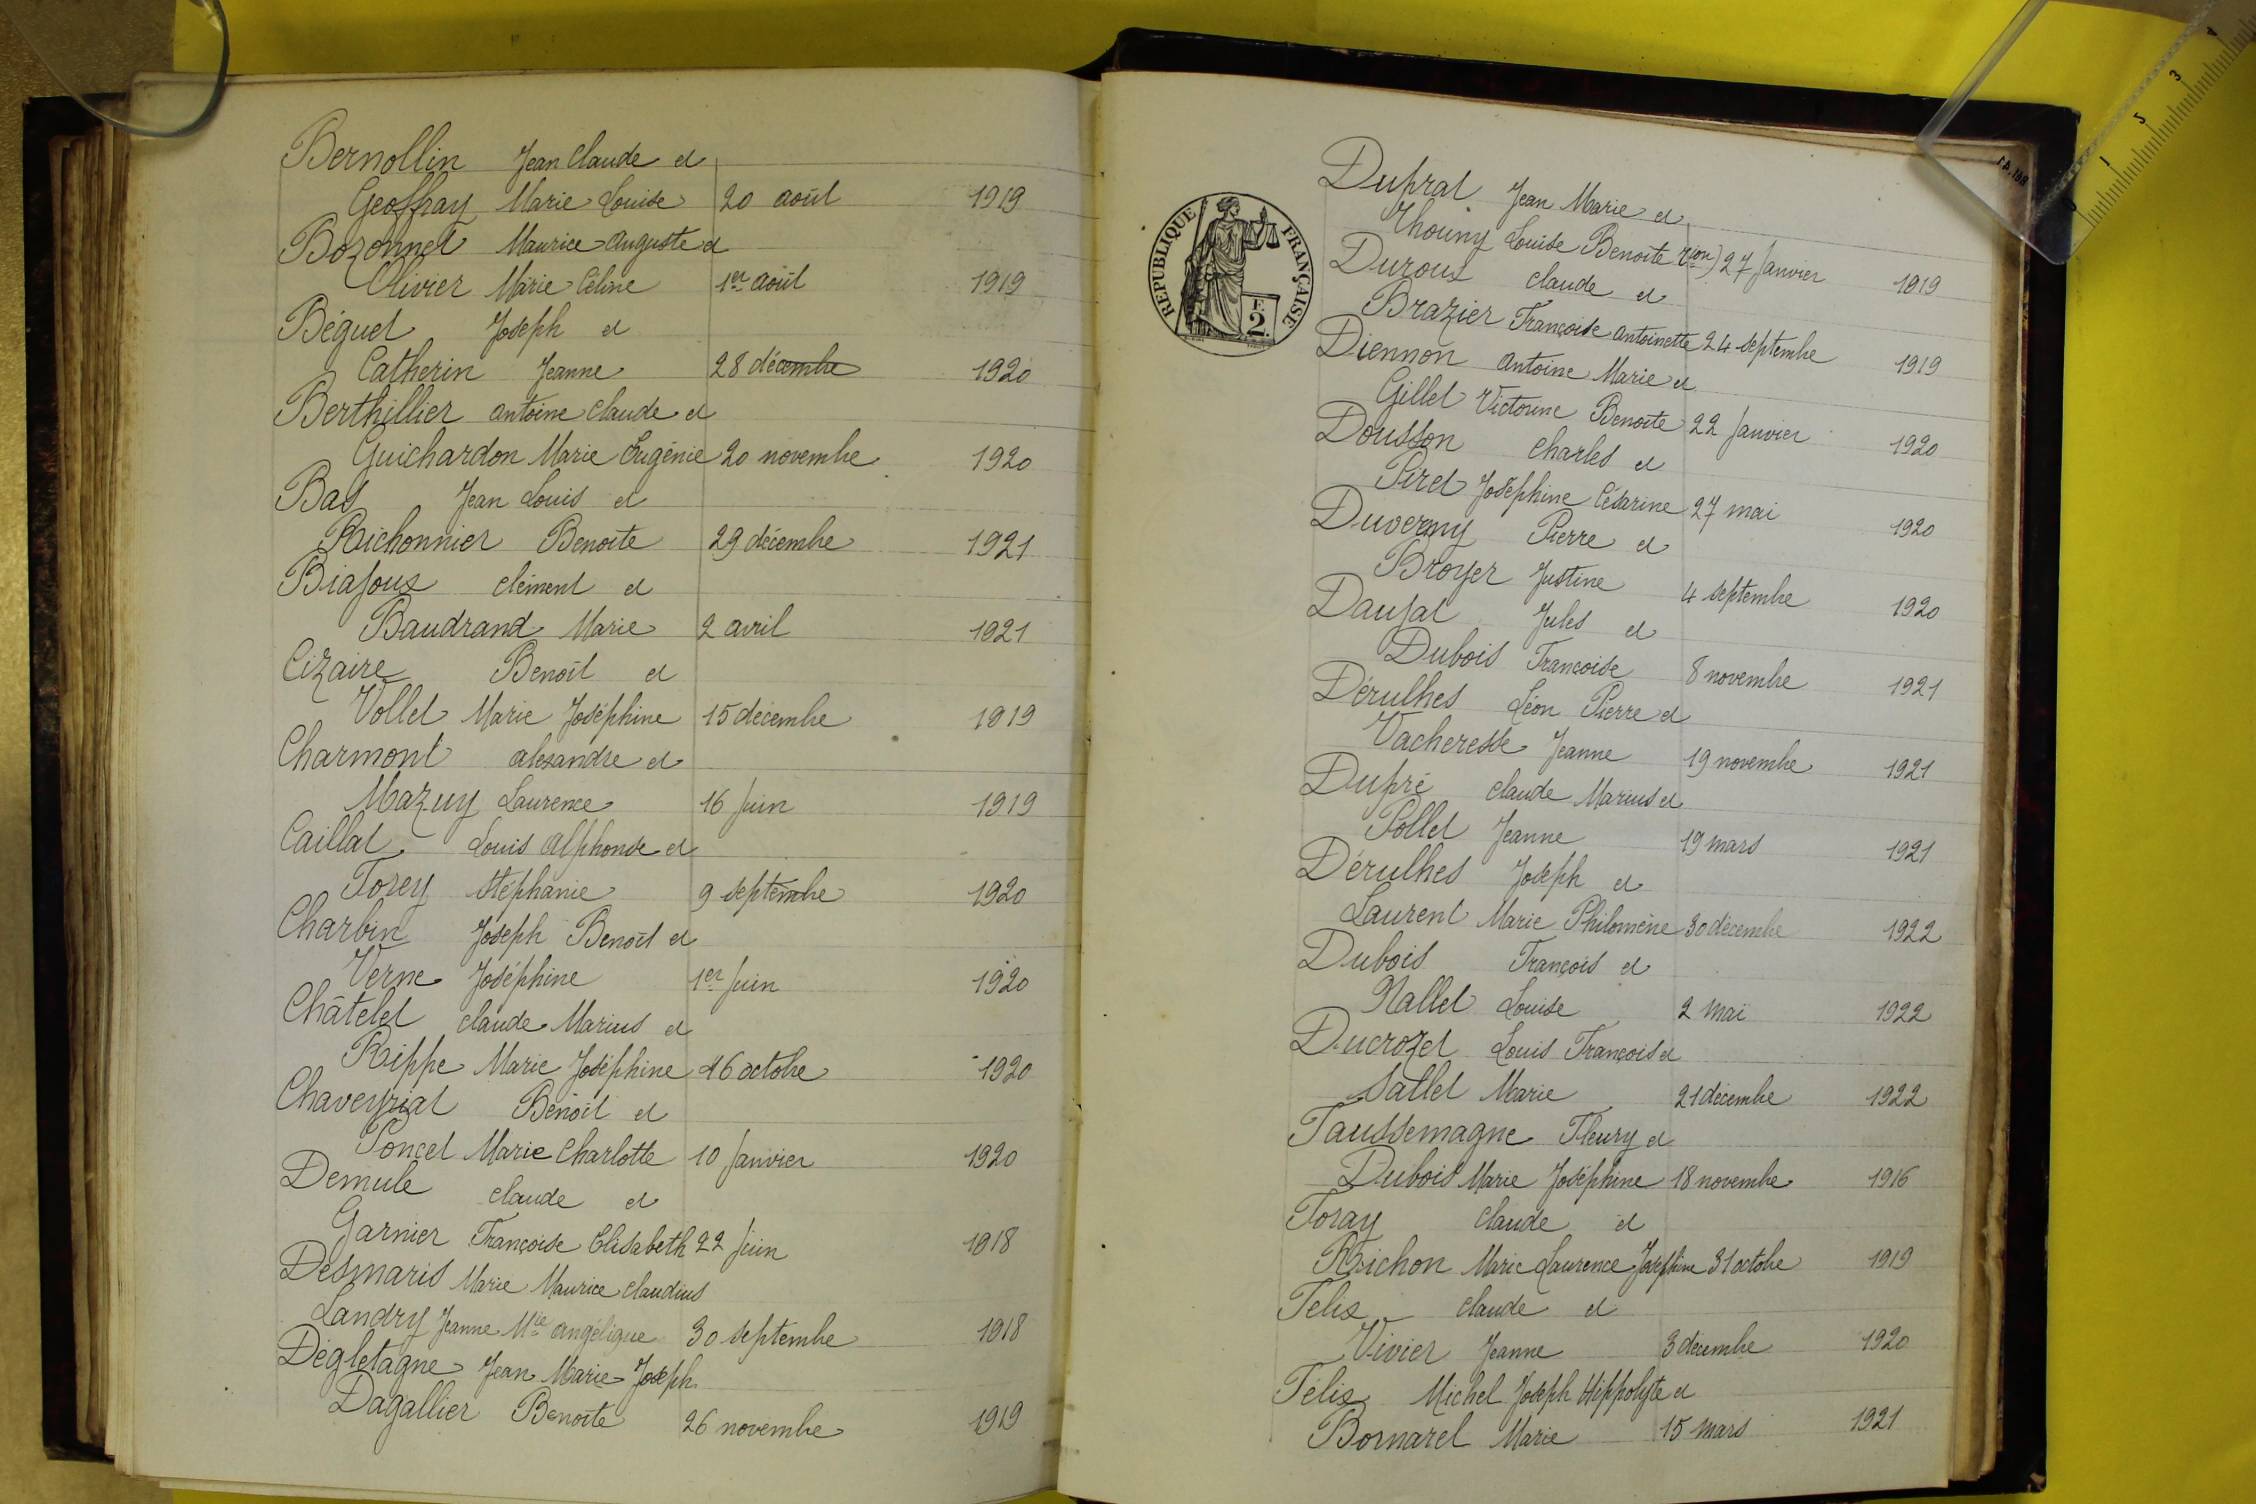 Bernollin Jean Claude et
Geoffray Marie Louise 20 août 1919
Bozonnet Maurice Auguste et
Olivier Marie Céline 1er août 1919
Béguet Joseph et
Catherin Jeanne 28 décembre 1920
Berthillier Antoine Claude et
Guichardon Marie Eugénie 20 novembre 1920
Bas Jean Louis et
Richonnier Benoite 29 décembre 1921
Biajoux Clément et
Baudrand Marie 2 avril 1921
Cizaire Benoît et
Vollet Marie Joséphine 15 décembre 1919
Charmont Alexandre et
Mazuy Laurence 16 Juin 1919
Caillat Louis Alphonse et
Forey Stéphanie 9 septembre 1920
Charbin Joseph Benoît et
Verne Joséphine 1er Juin 1920
Châtelet Claude Marius et
Rippe Marie Joséphine 16 octobre 1920
Chaveyriat Benoît et
Poncet Marie Charlotte 10 Janvier 1920
Demule Claude et
Garnier Françoise Elisabeth 22 Juin 1918
Desmaris Marie Maurice Claudius
Landry Jeanne Mie Angélique 30 septembre 1918
Dégletagne Jean Marie Joseph
Dagallier Benoite 26 novembre 1919
RÉPUBLIQUE FRANÇAISE
F.
2.
Duprat Jean Marie et
Thouny Louise Benoite 27 Janvier 1919
Duroux Claude et
Brazier Françoise Antoinette 24 septembre 1919
Diennon Antoine Marie et
Gillet Victorine Benoite 22 Janvier 1920
Dousson Charles et
Piret Joséphine Césarine 27 mai 1920
Duverny Pierre et
Broyer Justine 4 septembre 1920
Daujat Jules et
Dubois Françoise 8 novembre 1921
Dérulhes Léon Pierre et
Vacheresse Jeanne 19 novembre 1921
Dupré Claude Marius et
Pollet Jeanne 19 mars 1921
Dérulhes Joseph et
Laurent Marie Philomène 30 décembre 1922
Dubois François et
Nallet Louise 2 mai 1922
Ducrozet Louis François et
Sallet Marie 21 décembre 1922
Faussemagne Fleury et
Dubois Marie Joséphine 18 novembre 1916
Foray Claude et
Richon Marie Laurence Joséphine 31 octobre 1919
Felix Claude et
Vivier Jeanne 3 décembre 1920
Félix Michel Joseph Hippolyte et
Bornarel Marie 15 mars 1921